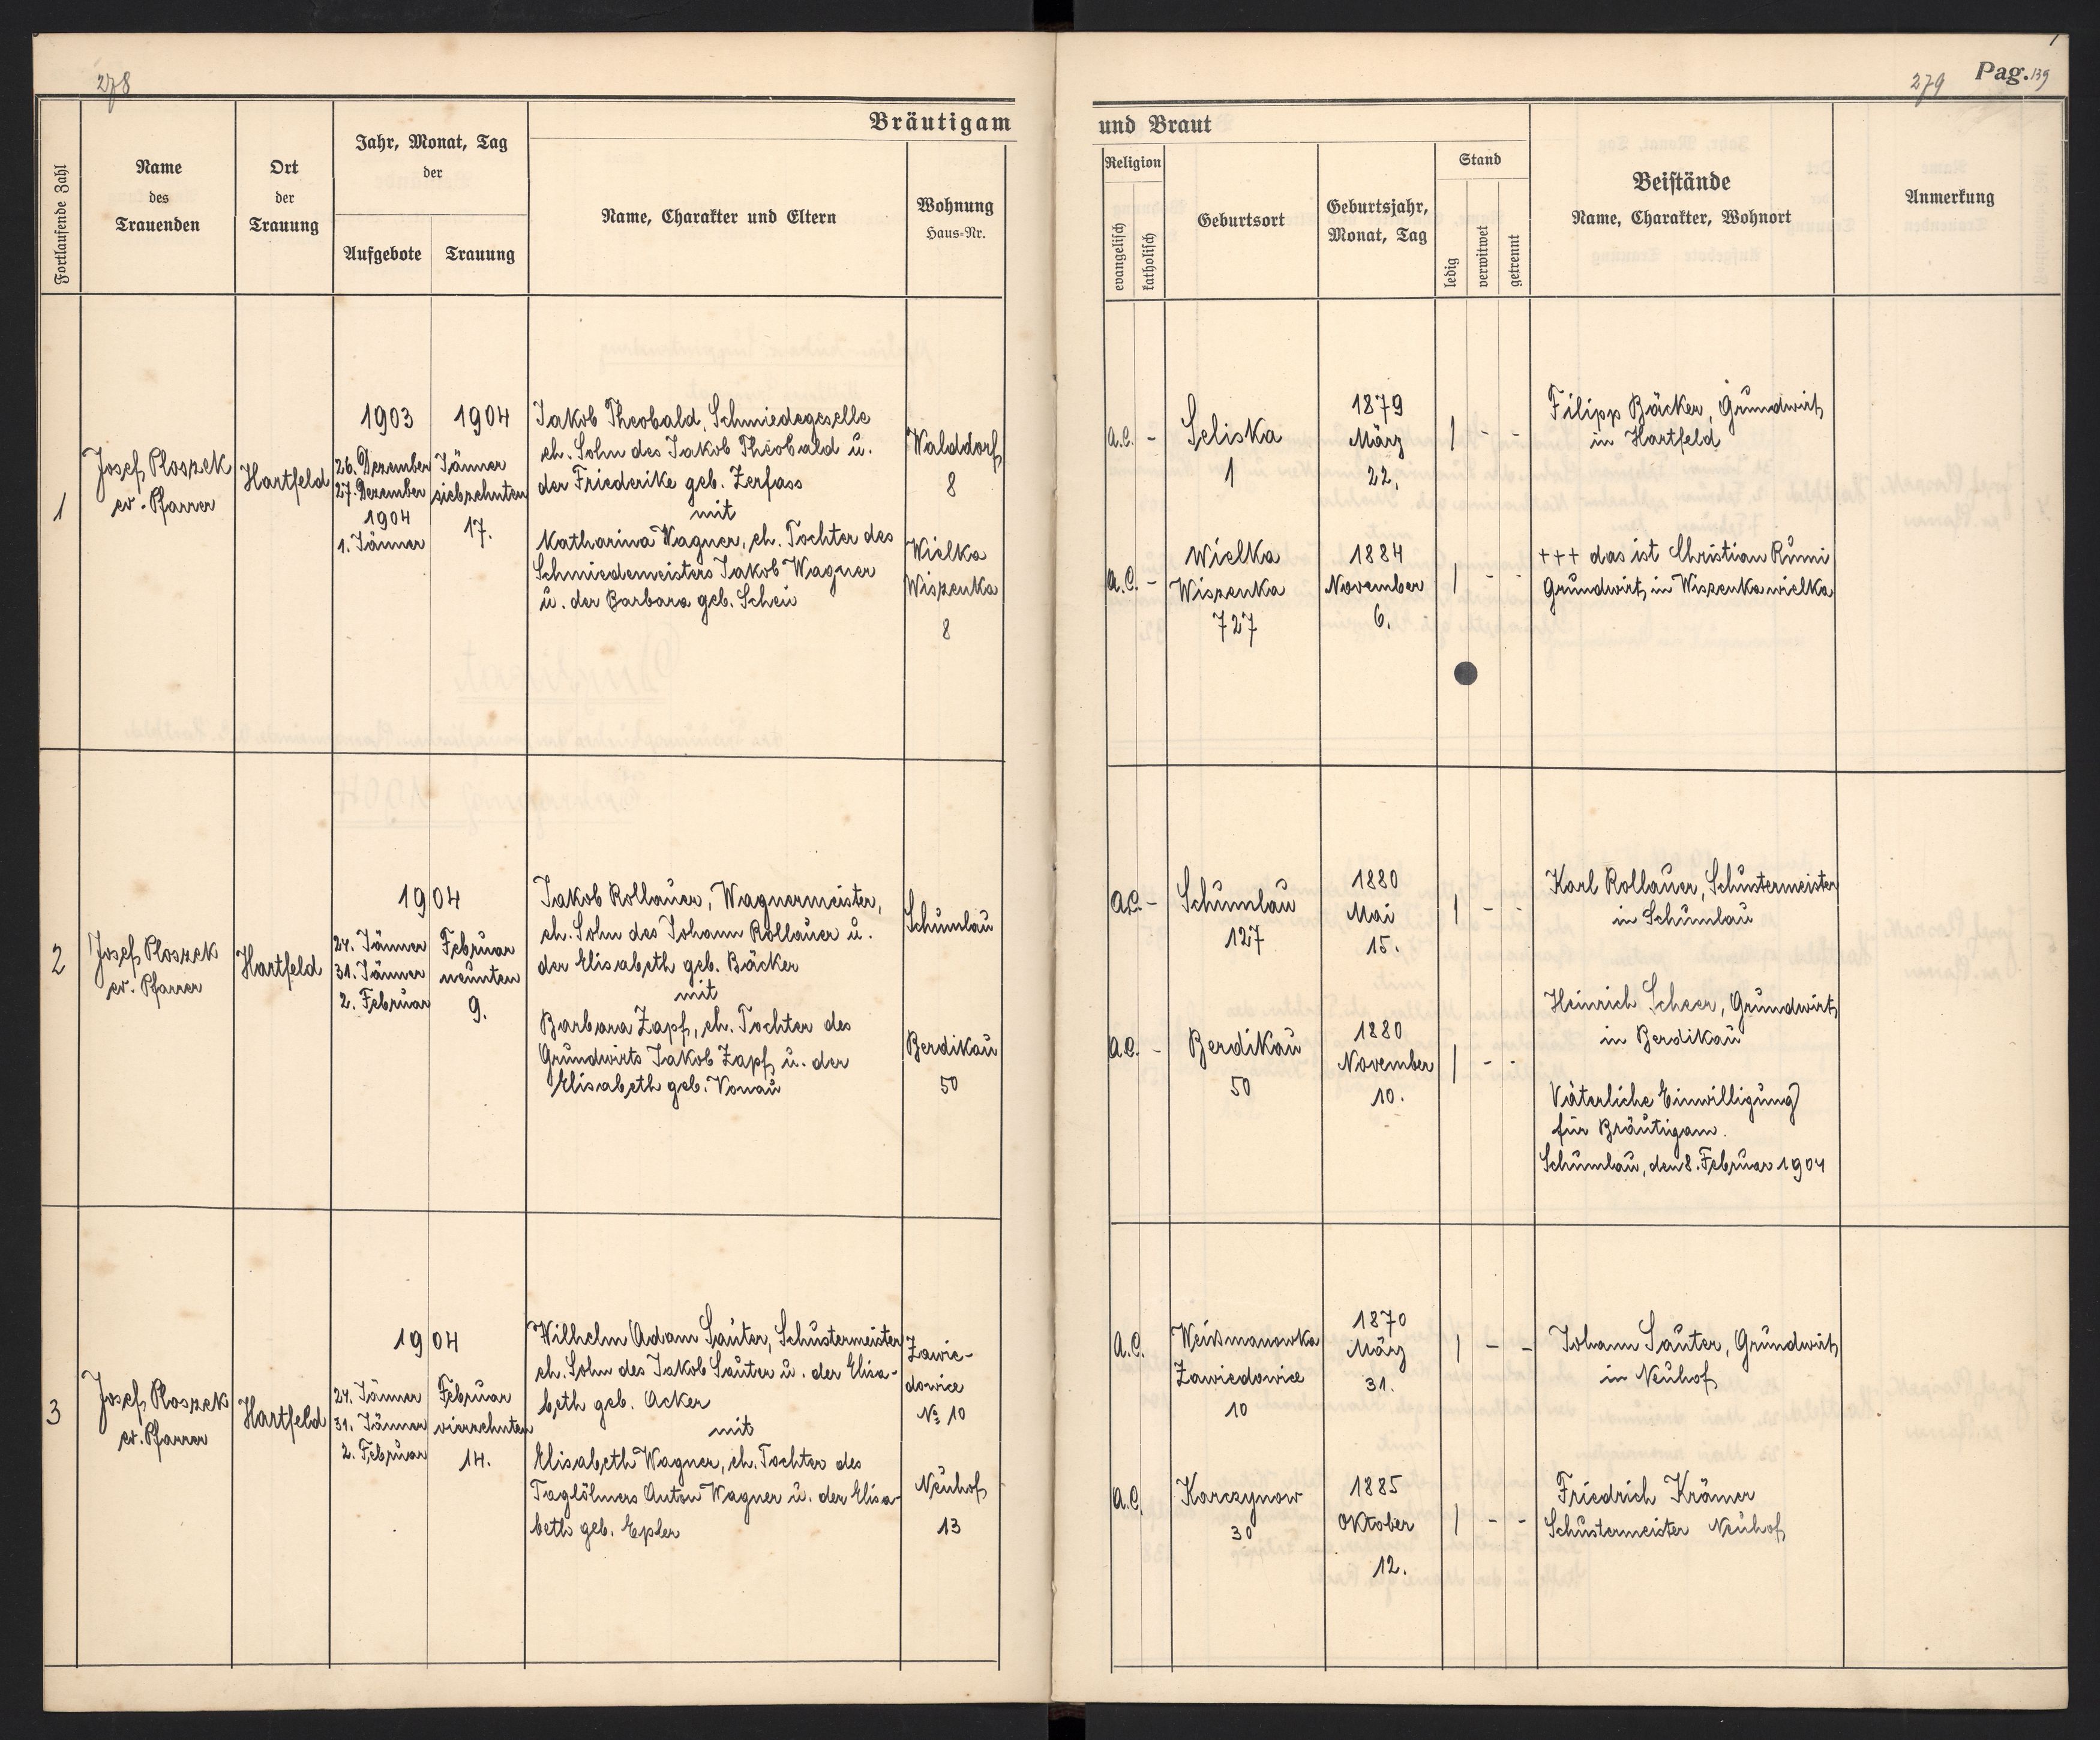 278
279 Pag. 139
Bräutigam und Braut
Fortlaufende Zahl
Name
des
Trauenden
Ort
der
Trauung
Jahr, Monat, Tag
der
Aufgebote
Trauung
Name, Charakter und Eltern
Wohnung
Haus-Nr.
Religion
evangelisch
katholisch
Geburtsort
Geburtsjahr,
Monat, Tag
Stand
ledig
verwitwet
getrennt
Beistände
Name, Charakter, Wohnort
Anmerkung
1
Josef Ploszek
ev. Pfarrer
Hartfeld
1903
26. Dezember
27. Dezember
1904
1. Jänner
1904
Jänner
siebzehnten
17.
Jakob Theobald, Schmiedegeselle
eh. Sohn des Jakob Theobald u.
der Friederike geb. Zerfass
mit
Katharina Wagner, eh. Tochter des
Schmiedemeisters Jakob Wagner
u. der Barbara geb. Schei
Walddorf
8
Wielka
Wiszenka
8
A.C. -
Seliska
1
1879
März
22.
| - -
Filipp Bäcker, Grundwirt
in Hartfeld
A.C. -
Wielka
Wiszenka
727
1884
November
6.
| - -
+++ das ist Christian Rumi
Grundwirt in Wiszenka wielka
2
Josef Ploszek
ev. Pfarrer
Hartfeld
1904
24. Jänner
31. Jänner
2. Februar
Februar
neunten
9.
Jakob Rollauer, Wagnermeister,
eh. Sohn des Johann Rollauer u.
der Elisabeth geb. Bäcker
mit
Barbara Zapf, eh. Tochter des
Grundwirts Jakob Zapf u. der
Elisabeth geb. Vonau
Schumlau
Berdikau
50
A.C. -
Schumlau
127
1880
Mai
15.
| - -
Karl Rollauer, Schustermeister
in Schumlau
A.C. -
Berdikau
50
1880
November
10.
| - -
Heinrich Scheer, Grundwirt
in Berdikau
Väterliche Einwilligung
für Bräutigam.
Schumlau, den 8. Februar 1904
3
Josef Ploszek
ev. Pfarrer
Hartfeld
1904
24. Jänner
31. Jänner
2. Februar
Februar
vierzehnten
14.
Wilhelm Adam Sauter, Schustermeister
eh. Sohn des Jakob Sauter u. der Elisa-
beth geb. Acker
mit
Elisabeth Wagner, eh. Tochter des
Taglöhners Anton Wagner u. der Elisa-
beth geb. Epler
Zawie-
dowice
№ 10
Neuhof
13
A.C.
Weismanowka
Zawiedowice
10
1870
März
31.
| - -
Johann Sauter, Grundwirt
in Neuhof
A.C.
Karczynow
30
1885
Oktober
12.
| - -
Friedrich Krämer
Schustermeister Neuhof